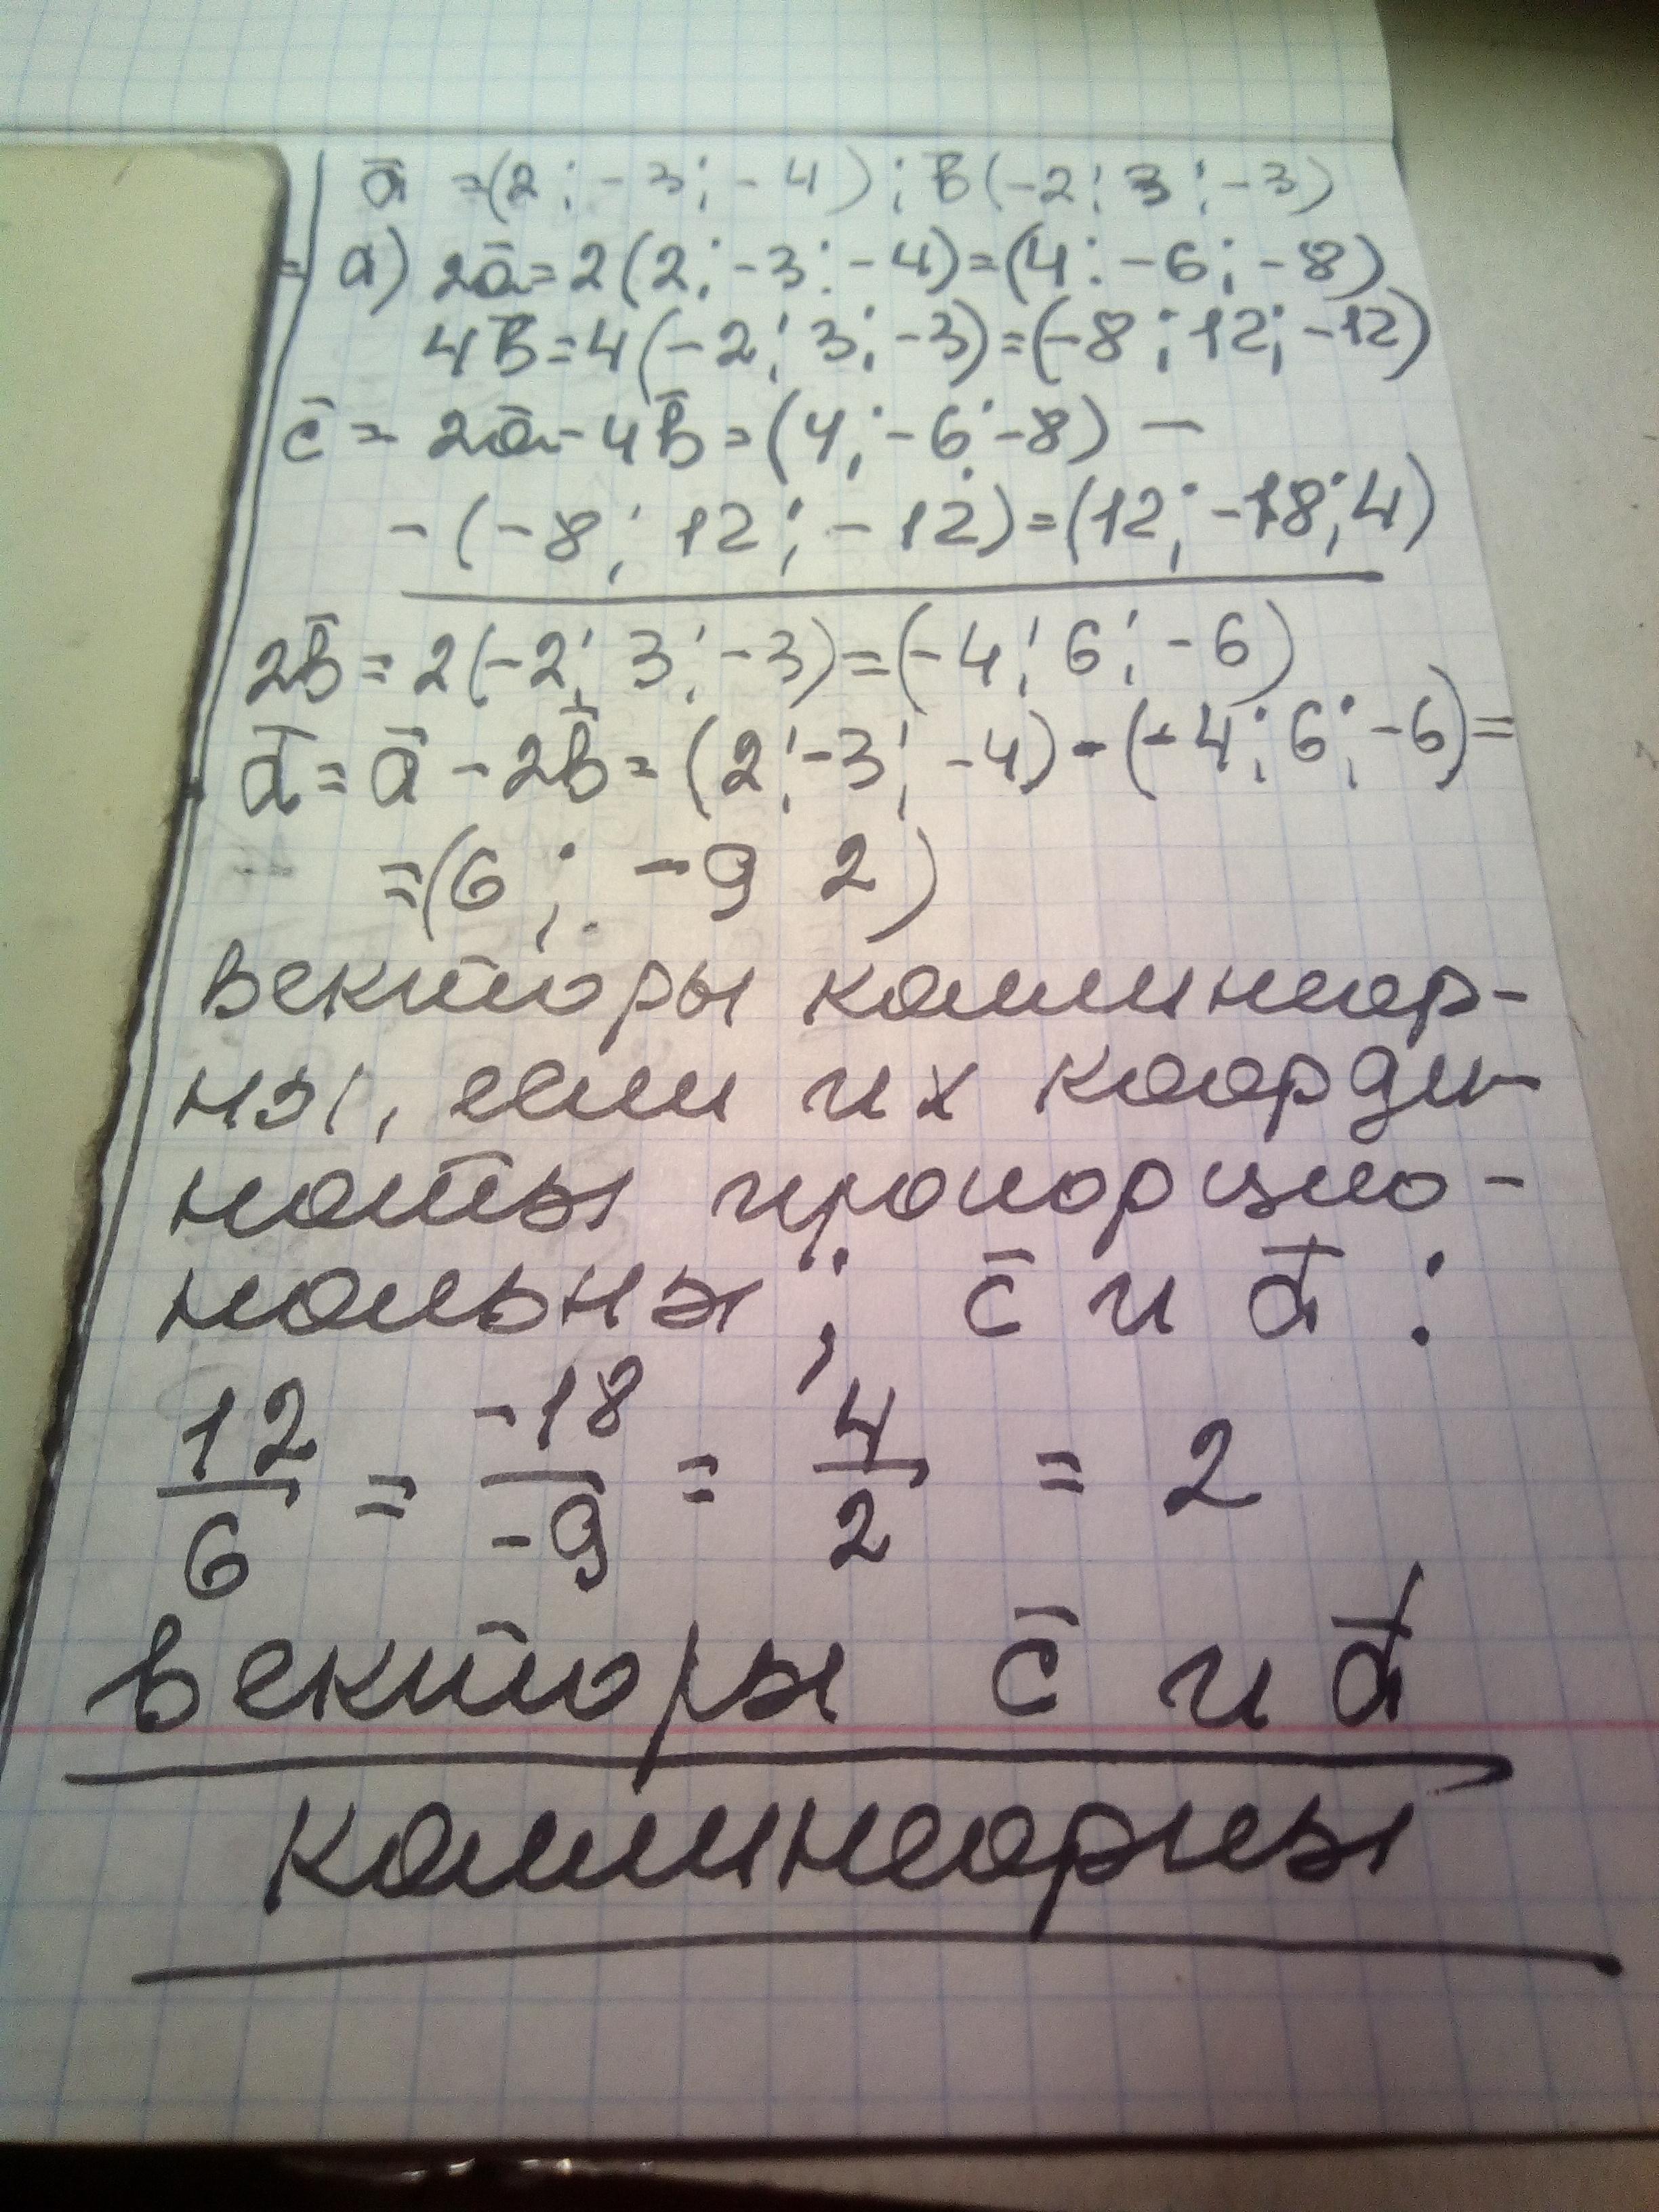 ā =(2; -3; -4); B̄(-2; 3; -3)
а) 2ā=2(2; -3; -4)=(4; -6; -8)
4B̄=4(-2; 3; -3)=(-8; 12; -12)
c̄ = 2ā-4B̄=(4; -6; -8) -
-(-8; 12; -12)=(12; -18; 4)
2B̄=2(-2; 3; -3)=(-4; 6; -6)
d̄=ā-2B̄=(2; -3; -4)-(-4; 6; -6)=
=(6; -9 2)
Векторы коллинеар-
ны, если их коорди
наты пропорцио-
нальны; c̄ и d̄:
12/6 = -18/-9 = 4/2 = 2
Векторы c̄ и d̄
коллинеарны